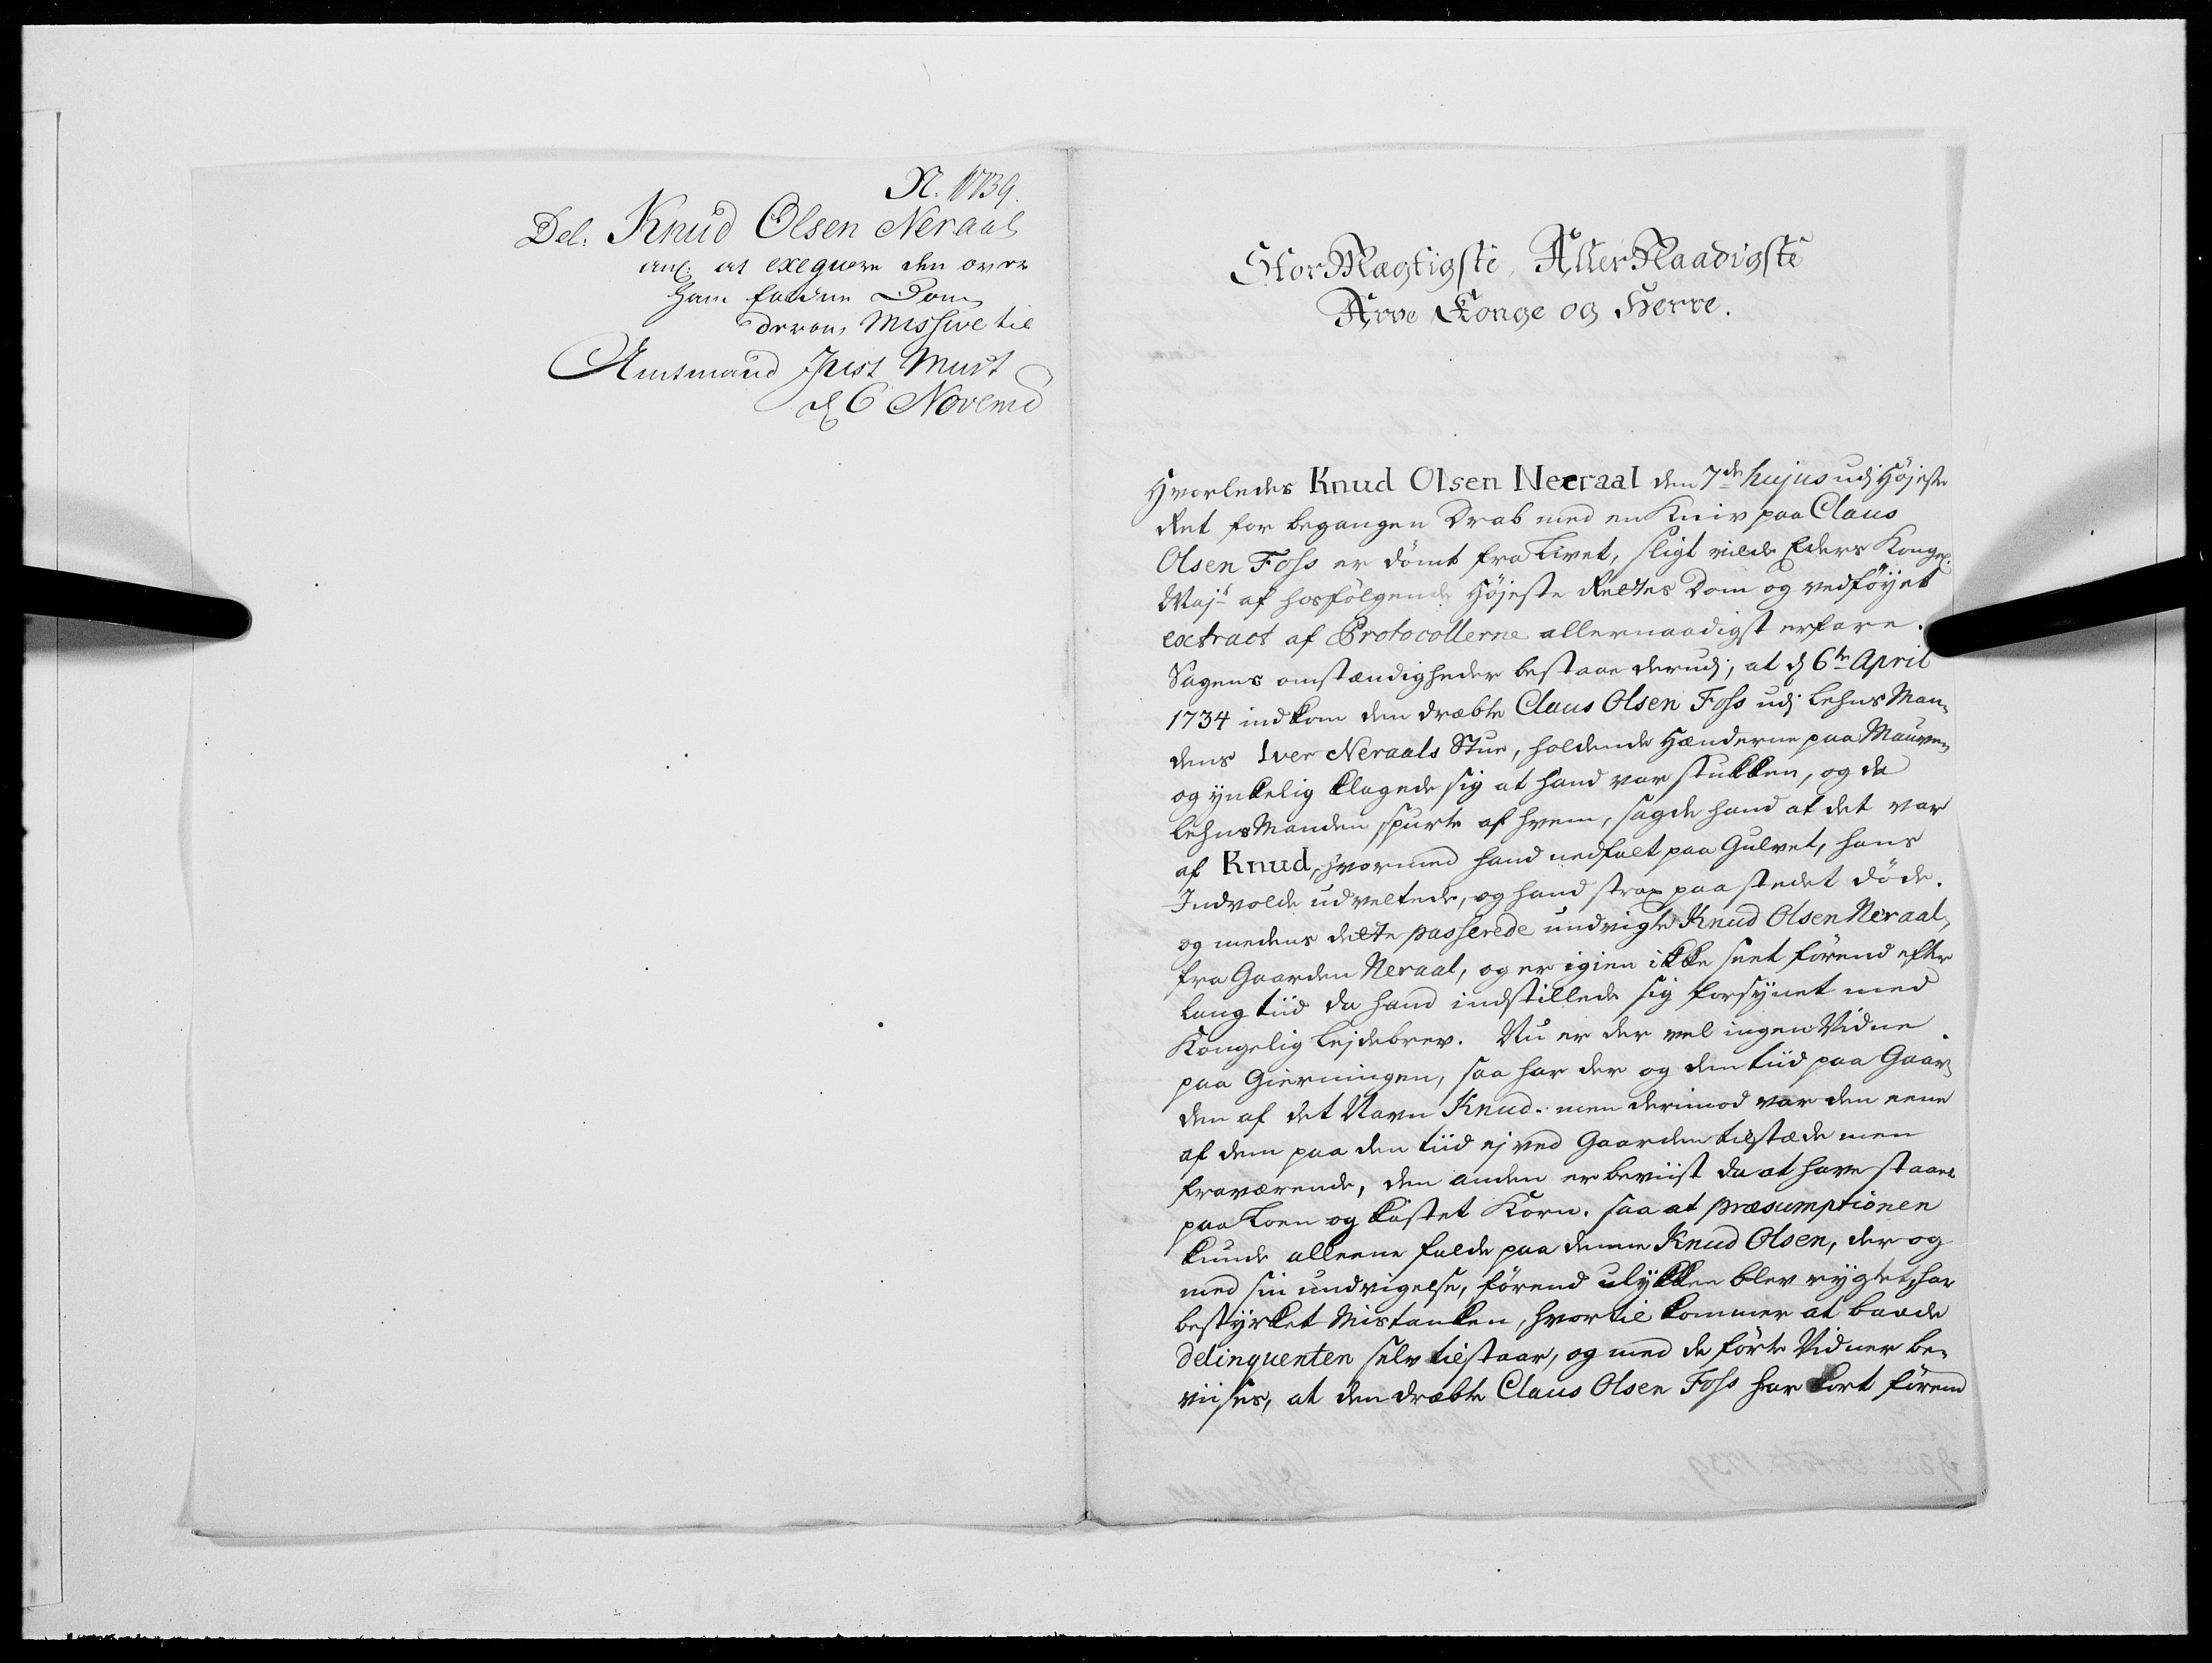 N. 1739.
Del. Knud Olsen Neraal
anl. at exeqvere den over
ham faldne Dom
derom Missive til
Amtmand Just Must
d. 6 Novemb
StorMægtigste, AllerNaadigste
Arve Konge og Herre.
Hvorledes Knud Olsen Neeraal den 7de hujus udj Højeste
Ret for begangen Drab med en Kniv paa Claus
Olsen Foss er dömt fra Livet, sligt vilde Eders Kongel.
Majt af hosfölgende Højeste Rettes Dom og vedföyet
extract af Protocollerne allernaadigst erfare.
Sagens omstændigheder bestaae derudj, at d 6te April
1734 indkom den dræbte Claus Olsen Foss udj LehnsMan-
dens Iver Neraals Stue, holdende Hænderne paa Mauven
og ÿnkelig klagede sig at hand var stukken, og da
LehnsManden spurte af hvem, sagde hand at det var
af Knud, hvormed hand nedfalt paa Gulvet, hans
Indvolde udveltede, og hand strax paa stedet döde.
og medens dette passerede undvigte Knud Olsen Neraal,
fra Gaarden Neraal, og er igien ikke seet förend efter
lang tiid da hand indstillede sig forsÿnet med
Kongelig Lejdebrev. Nu er der vel ingen Vidne
paa Gierningen, saa har der og den tiid paa Gaar-
den af det Navn Knud. men derimod var den eene
af dem paa den tiid ej ved Gaarden tilstæde men
fraværende, den anden er beviist da at have staaet
paa Loen og kastet Korn. saa at præsumptionen
kunde alleene falde paa denne Knud Olsen, der og
med sin undvigelse, förend ulÿkken blev rÿgtet, har
bestÿrket Mistanken, hvortil kommer at baade
delinquenten selv tilstaar, og med de förte Vidner be-
viises, at den dræbte Claus Olsen Foss har kort förend